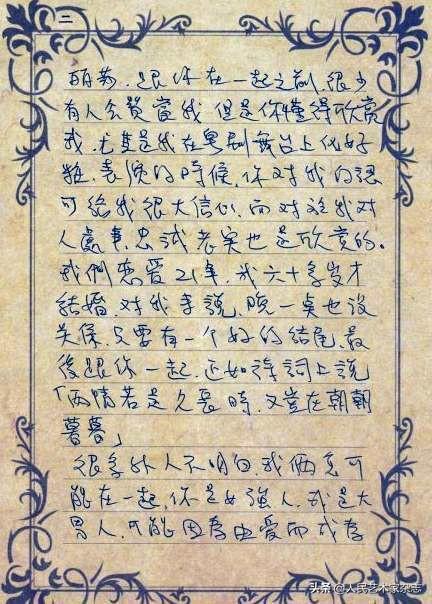 二
丽莎，跟你在一起之前，很少
有人会赞賞我，但是你懂得欣赏
我，尤其是我在粤剧舞台上做好
戏，表演的時候，你对我的認
可給我很大信心，而对於我对
人處事，忠誠老实也是欣赏的。
我們恋爱21年，我六十多岁才
结婚，对我来說，晚一点也没
关係，只要有一个好的结尾，最
後跟你一起，正如詩詞上說
「兩情若是久長時，又豈在朝朝
暮暮」
很多外人不明白，我俩怎可
能在一起，你是女強人，我是大
男人，可能因為由爱而成為
头条 @人民艺术家杂志